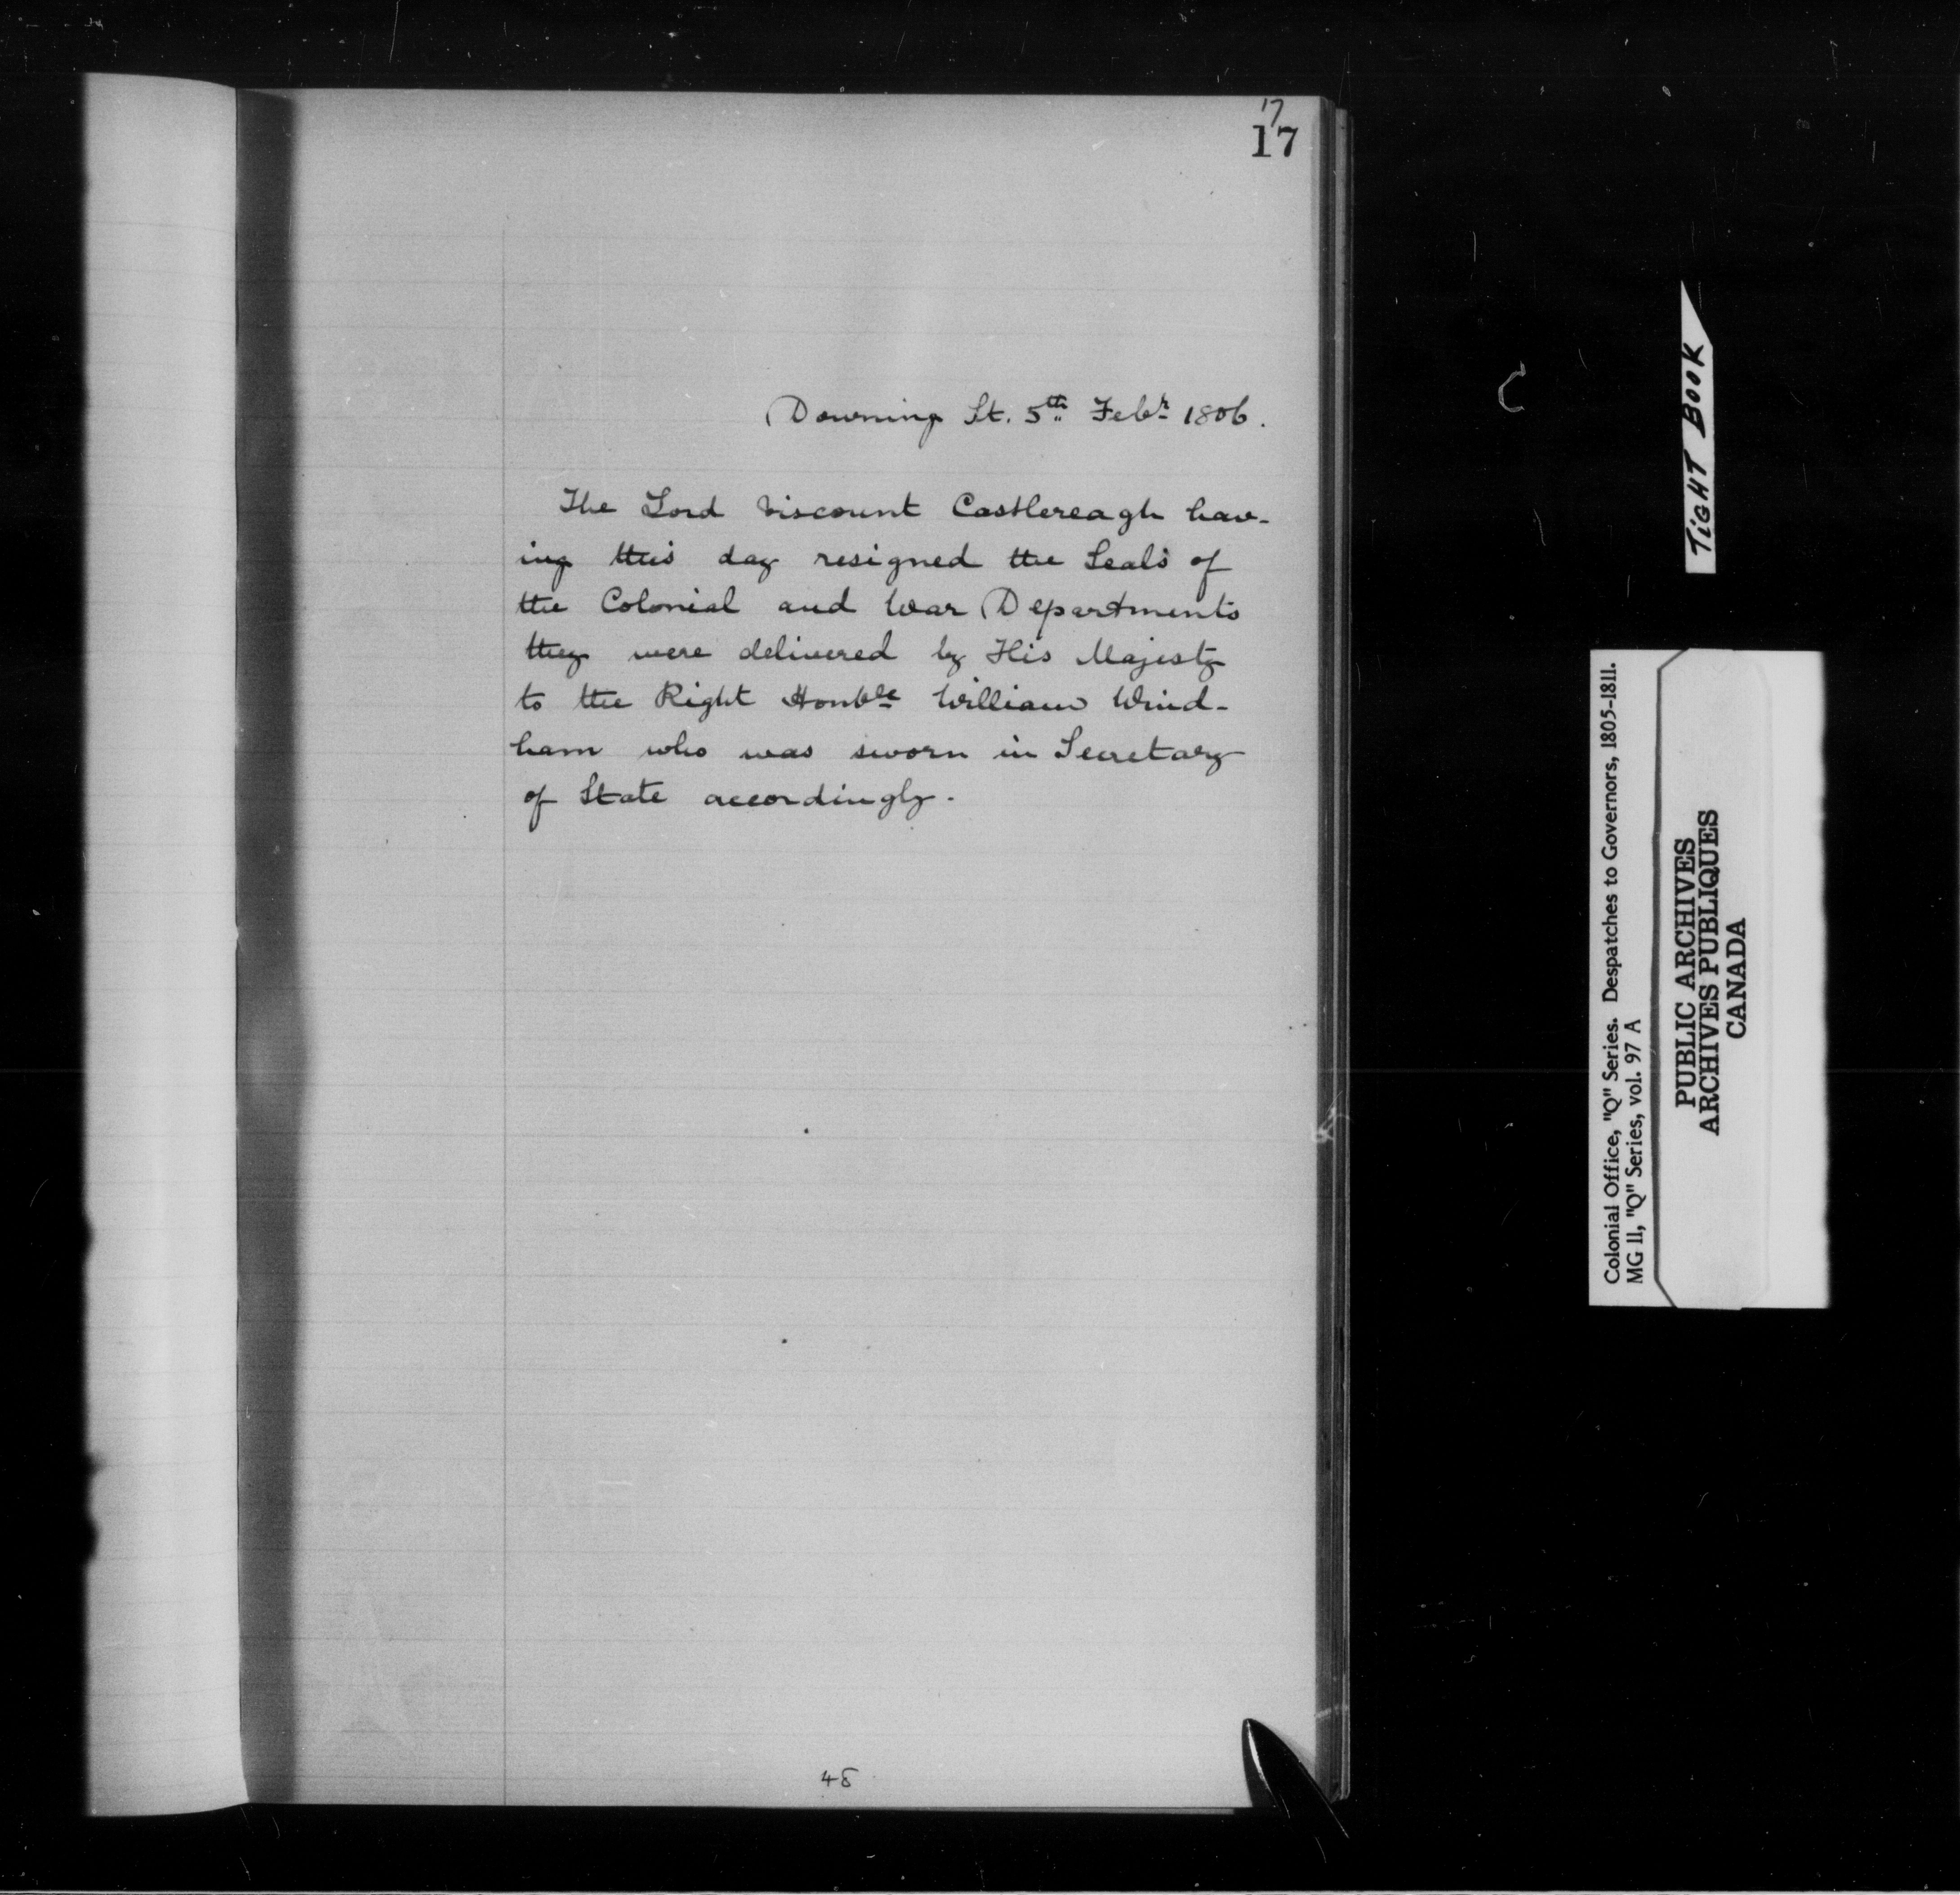 17
17
Downing St. 5th Febr 1806.
The Lord Viscount Castlereagh hav-
ing this day resigned the Seals of
the Colonial and War Departments
they were delivered by His Majesty
to the Right Honble William Wind-
ham who was sworn in Secretary
of State accordingly.
48
TIGHT BOOK
Colonial Office, "Q" Series. Despatches to Governors, 1805-1811.
MG 11, "Q" Series, vol. 97 A
PUBLIC ARCHIVES
ARCHIVES PUBLIQUES
CANADA